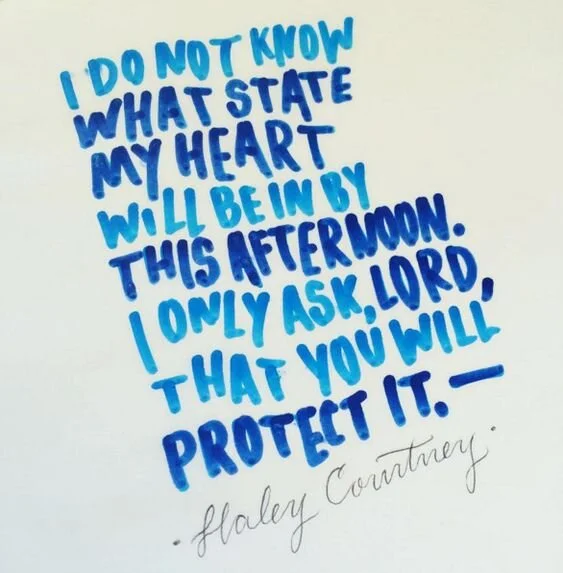 I DO NOT KNOW
WHAT STATE
MY HEART
WILL BE IN BY
THIS AFTERNOON.
I ONLY ASK, LORD,
THAT YOU WILL
PROTECT IT. —
· Haley Courtney ·